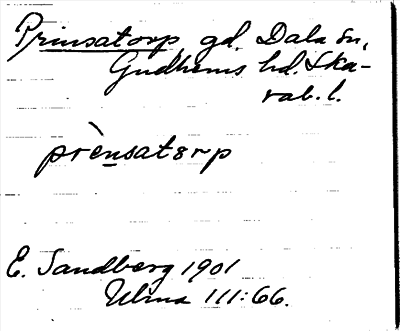 Prinsatorp gd. Dala sn,
Gudhems hd. Ska-
rab. l.
prènsatorp
E. Sandberg 1901
Ulma 111:66.